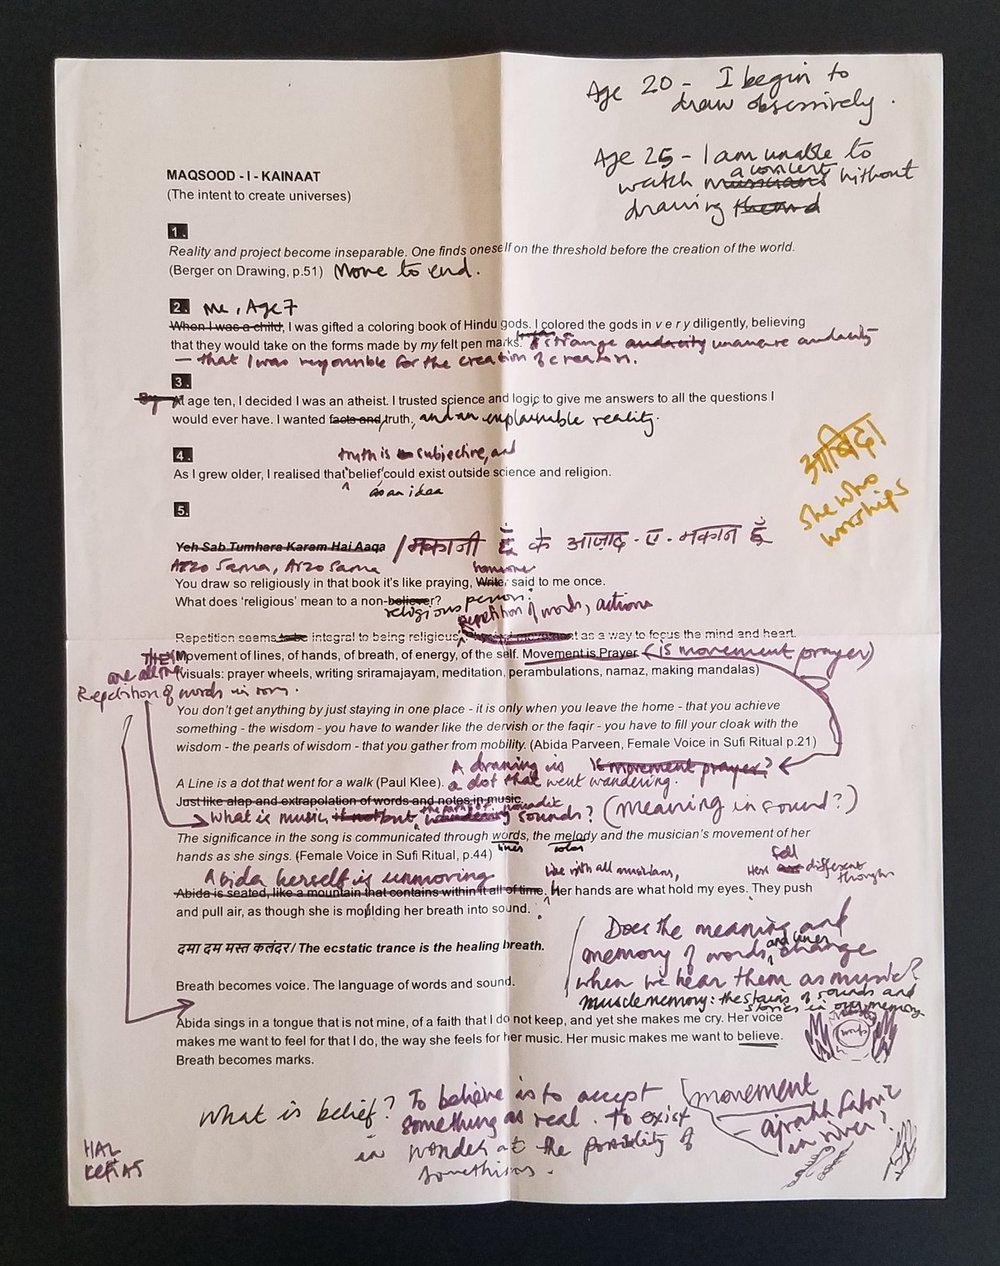 Age 20 - I begin to
draw obsessively.
Age 25 - I am unable to
a concert
watch musicians without
drawing them
MAQSOOD - I - KAINAAT
(The intent to create universes)
1.
Reality and project become inseparable. One finds oneself on the threshold before the creation of the world.
(Berger on Drawing, p.51) Move to end.
2. me, Age 7
When I was a child, I was gifted a coloring book of Hindu gods. I colored the gods in v e r y diligently, believing
that they would take on the forms made by my felt pen marks. A strange audacity unaware audacity
- that I was responsible for the creation of creation.
3.
By At age ten, I decided I was an atheist. I trusted science and logic to give me answers to all the questions I
would ever have. I wanted facts and truth, and an explainable reality.
4. truth is subjective, and
As I grew older, I realised that belief could exist outside science and religion.
as an idea
आबिदा
She who
worships
5.
Yeh Sab Tumhara Karam Hai Aaqa / मकाजी हूँ के आज़ाद - ए - मकान हूँ
Arzo Sama, Arzo Sama
someone
You draw so religiously in that book it's like praying, Writer said to me once.
What does 'religious' mean to a non-believer?
religious person?
repetition of words, actions
Repetition seems to be integral to being religious, as a way to focus the mind and heart.
Movement of lines, of hands, of breath, of energy, of the self. Movement is Prayer (is movement prayer)
(Visuals: prayer wheels, writing sriramajayam, meditation, perambulations, namaz, making mandalas)
THEM
are all the
Repetition of words in song.
You don't get anything by just staying in one place - it is only when you leave the home - that you achieve
something - the wisdom - you have to wander like the dervish or the faqir - you have to fill your cloak with the
wisdom - the pearls of wisdom - that you gather from mobility. (Abida Parveen, Female Voice in Sufi Ritual p.21)
A drawing is Is movement prayer?
A Line is a dot that went for a walk (Paul Klee). a dot that went wandering.
Just like alap and extrapolation of words and notes in music.
the path of nomadic
What is music if not but wandering sounds? (Meaning in sound?)
The significance in the song is communicated through words, the melody and the musician's movement of her
lines color
hands as she sings. (Female Voice in Sufi Ritual, p.44)
Abida herself is unmoving like with all musicians, Hers fell are different though
Abida is seated, like a mountain that contains within it all of time. Her hands are what hold my eyes. They push
and pull air, as though she is moulding her breath into sound.
दमा दम मस्त कलंदर / The ecstatic trance is the healing breath.
Does the meaning and
memory of words and lines change
when we hear them as music?
Muscle memory: the stains of sounds and
stories in our memory
Breath becomes voice. The language of words and sound.
Abida sings in a tongue that is not mine, of a faith that I do not keep, and yet she makes me cry. Her voice
makes me want to feel for that I do, the way she feels for her music. Her music makes me want to believe.
Breath becomes marks.
words
What is belief? To believe is to accept
something as real. To exist
in wonder at the possibility of
something.
movement
ajrakh fabric
in river?
HAL
KEFIAT